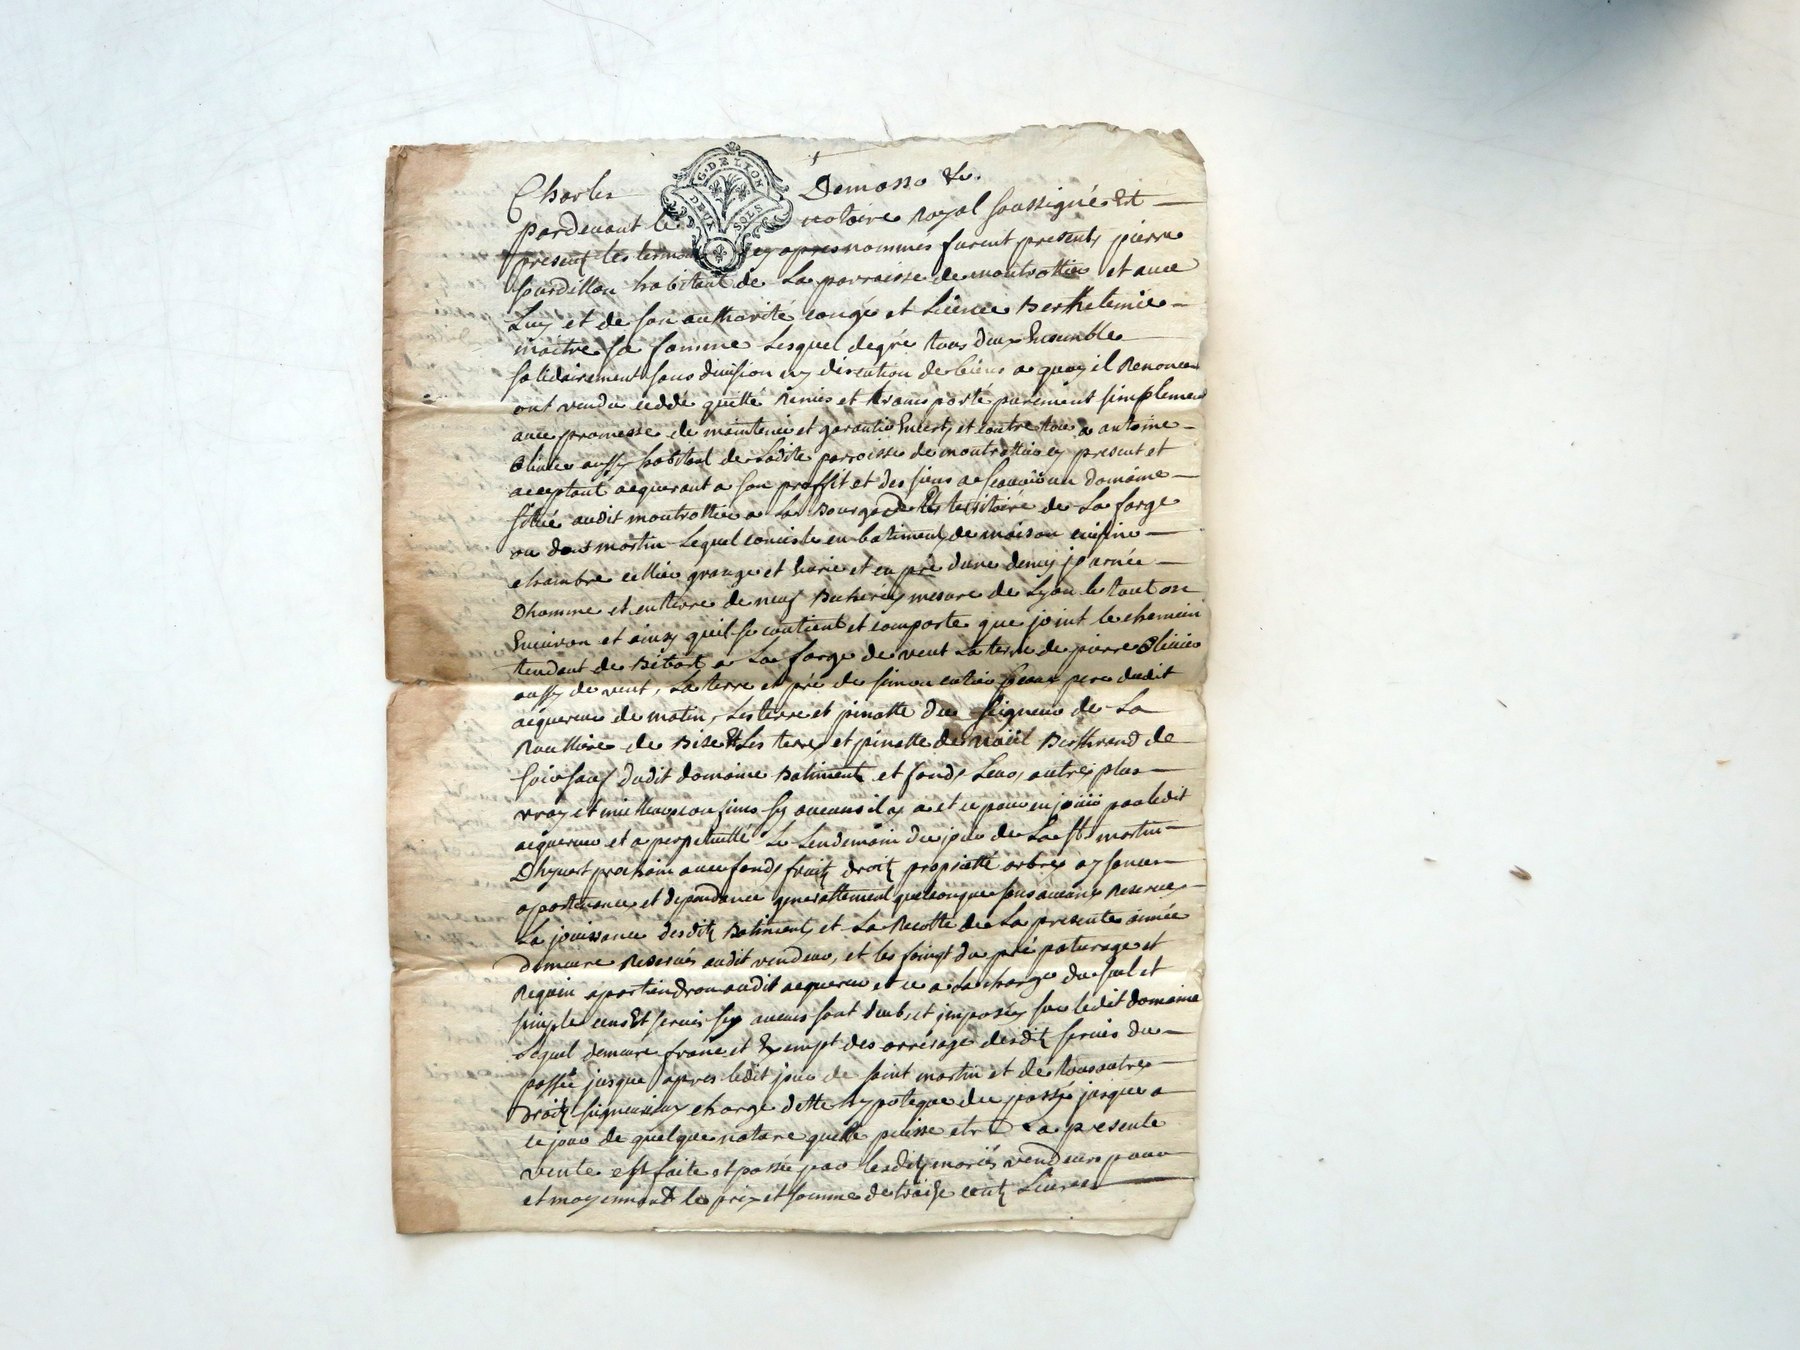 G. DE LYON
DEUX SOLS
Charles Demasso &c.
pardevant le notaire Royal soussigné Et
presents les temoins cy apres nommés furent presents pierre
habitant de La parroisse de montrottier et avec
Luy et de son authorité congé et Licence Berthelemie
maitre sa femme Lesquel de gré tous deux Ensemble
solidairement sans division ny discution de biens a quoy il Renoncent
ont vendu ceddé quitté Remis et transporté purement simplement
avec promesse de maintenir et garantir Envers et contre tous a antoine
Olivier aussy habitant de Ladite parroisse de montrottier cy present et
acceptant acquerant a son proffit et des siens a scavoir un domaine
situé audit montrottier a La Bourgade Et territoire de La farge
ou dout martin Lequel consiste en batiments de maison cuisine
chambre cellier grange et Ecurie et en pré dune demy journée
Dhomme et en terre de neuf Bicherées mesure de Lyon le tout ou
Environ et ainsy quil se contient et comporte que joint le chemin
tendant de a La farge de vent La terre de pierre Olivier
aussy de vent, La terre et pré de simon pere dudit
acquereur de matin, Les terre et pinatte du seigneur de La
Routtiere de Bise Et Les terre et pinatte de Bertherand de
soir sauf dudit domaine Batiments et fonds Leurs autres plus
vray et meilleurs confins sy aucuns il y a et ce pour en jouir par ledit
acquereur et a perpetuitté Le Lendemain du jour de La St martin
Dhyvert prochain avec fonds fruits droits proprietté arbres aysances
apartenances et dependance generallement quelconque sans aucune Reserve
La jouissance desdits Batiments et La Recolte de La presente année
demeure Reservés audit vendeur, et les foings du pré paturage et
Reguin apartiendron audit acquereur et ce a La charge du seul et
simple cens Et servis sy aucuns sont dubs et imposés sur ledit domaine
Lequel demeure franc et Exempt des arrérage desdits servis du
passé jusque apres ledit jour de saint martin et de tous autre
Droits seigneuriaux charge dette hypoteque du passé jusque a
ce jour de quelque nature quelle puisse etre La presente
vente est faite et passée par lesdits mariés vendeurs pour
et moyennant le prix et somme de treize cents Livres